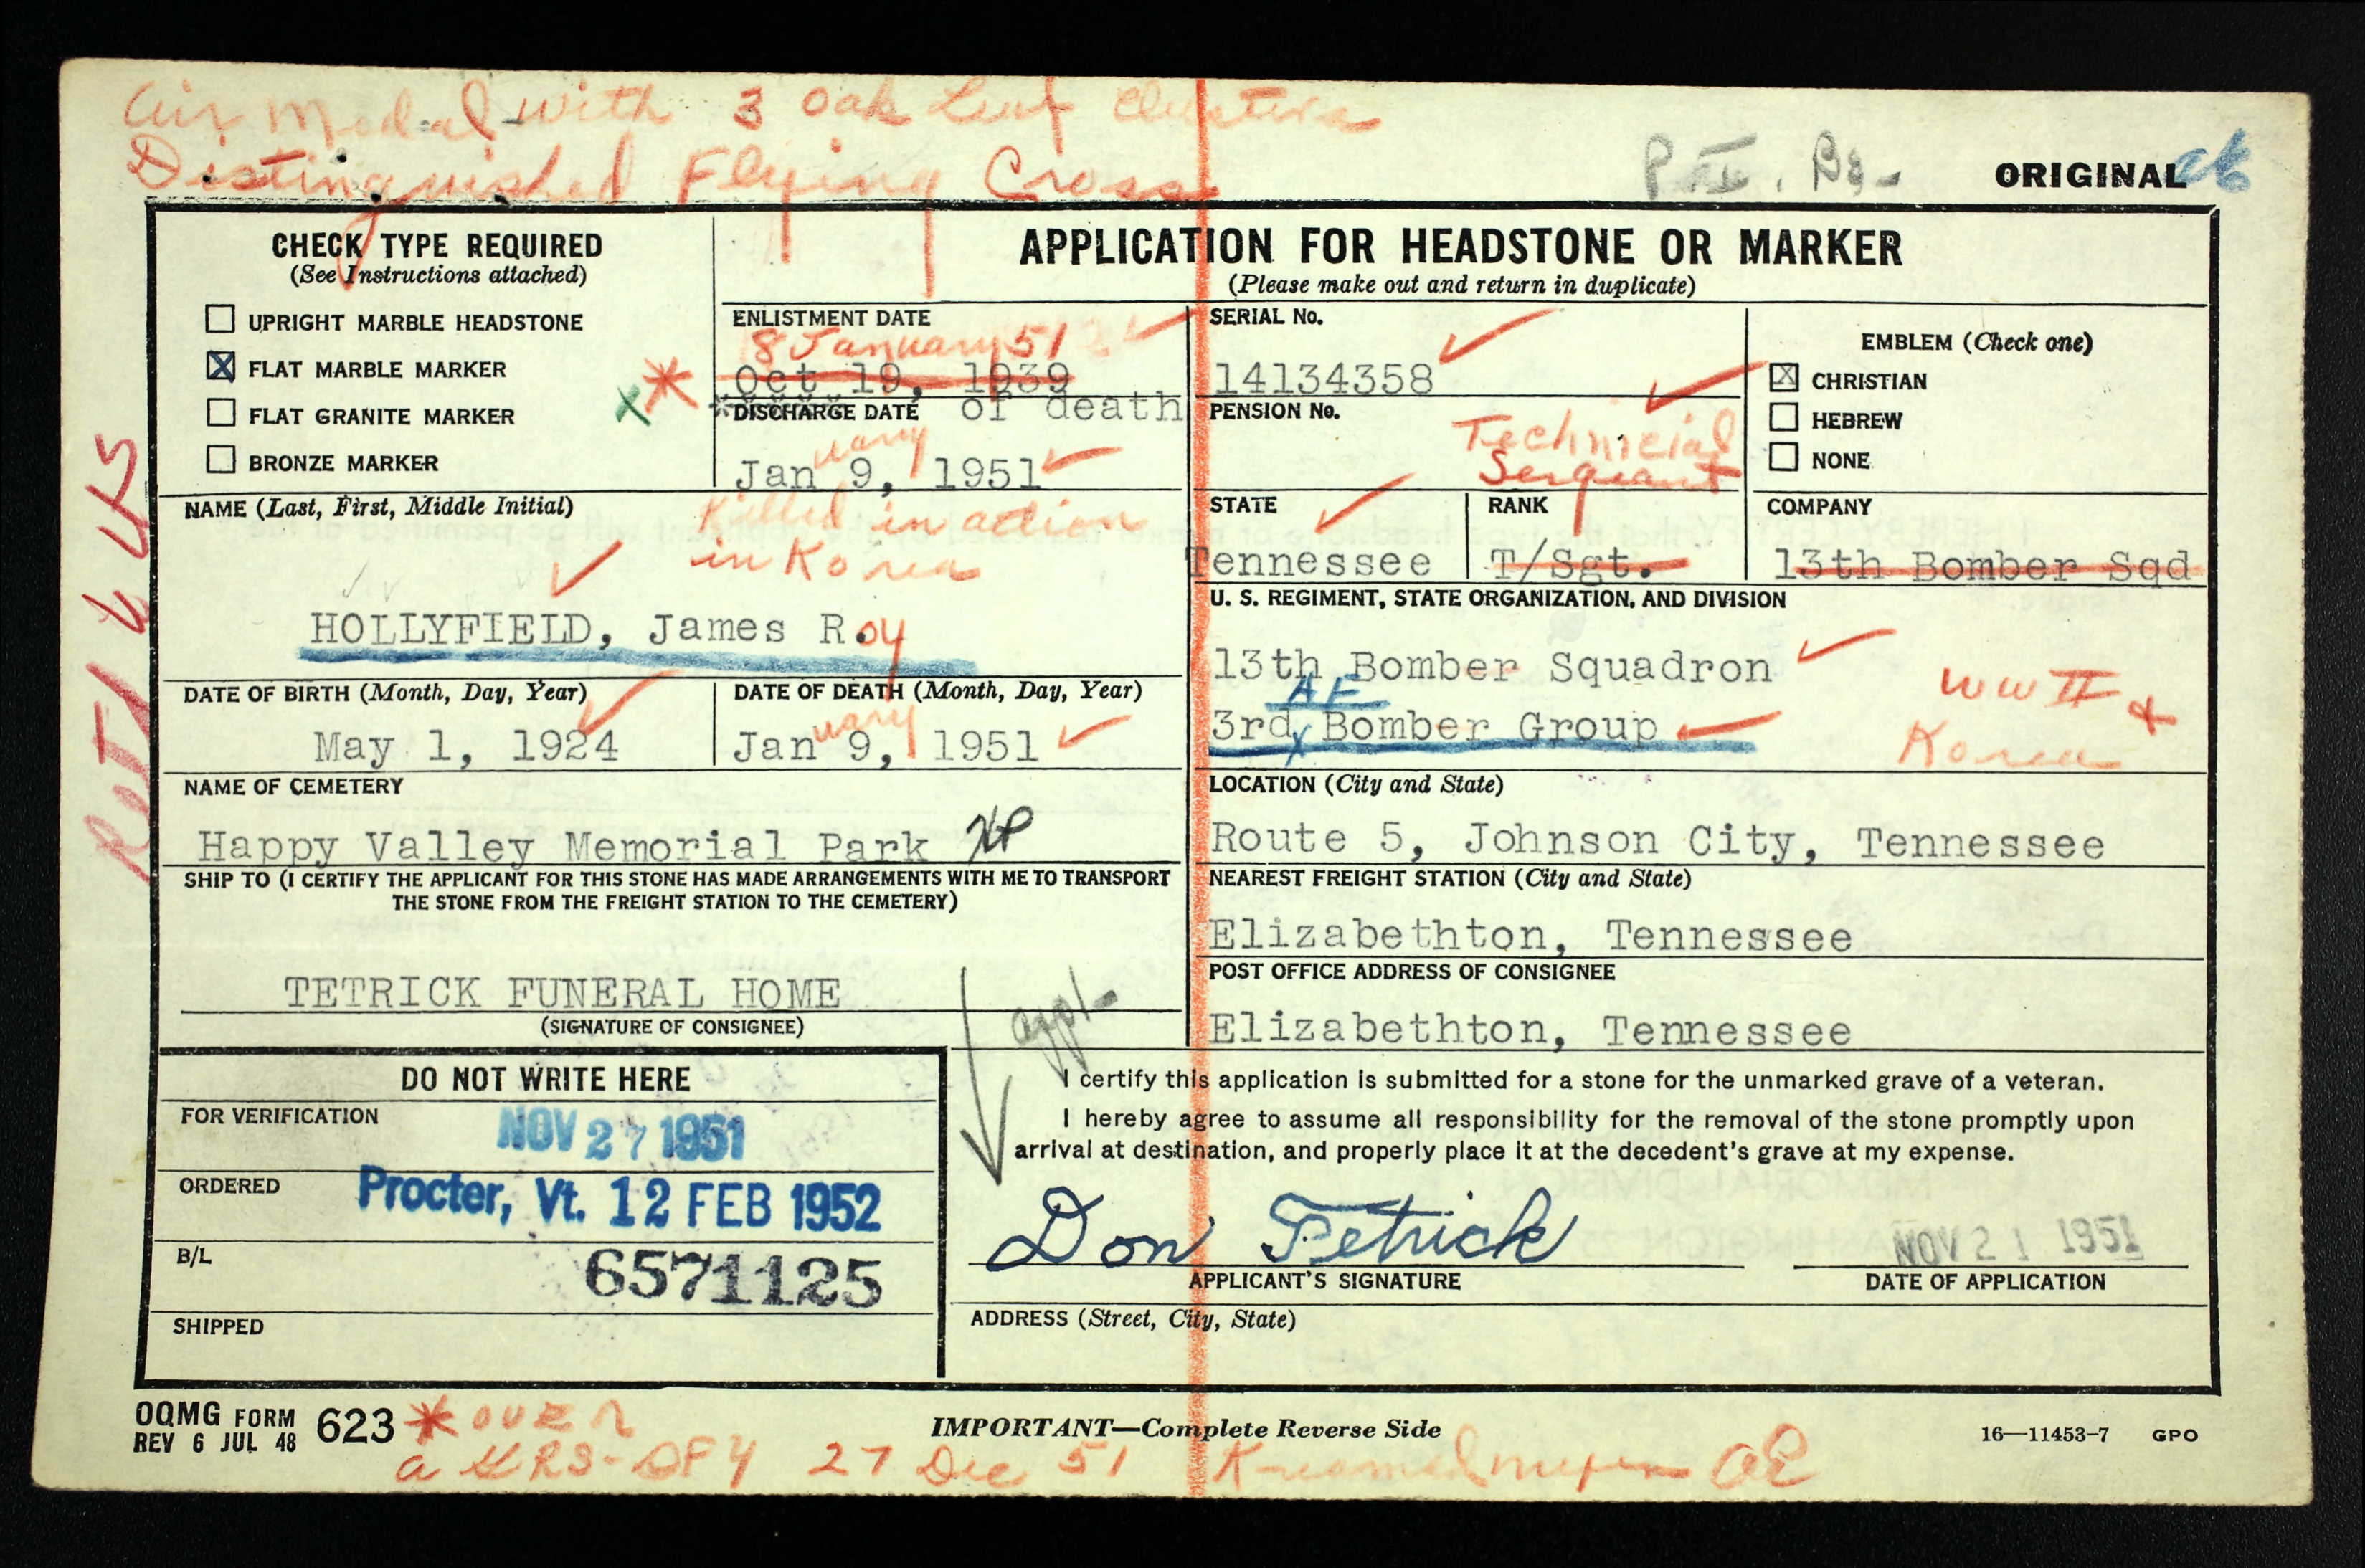 Air Medal with 3 Oak Leaf Clusters
Distinguished Flying Cross
ORIGINAL
CHECK TYPE REQUIRED
(See Instructions attached)
UPRIGHT MARBLE HEADSTONE
X FLAT MARBLE MARKER
FLAT GRANITE MARKER
BRONZE MARKER
APPLICATION FOR HEADSTONE OR MARKER
(Please make out and return in duplicate)
ENLISTMENT DATE
8 January 51
Oct 19, 1939
DISCHARGE DATE of death
January 9, 1951
SERIAL No.
14134358
PENSION No.
Technicial
Sergeant
EMBLEM (Check one)
X CHRISTIAN
HEBREW
NONE
NAME (Last, First, Middle Initial)
Killed in action
in Korea
HOLLYFIELD, James R.oy
STATE
Tennessee
RANK
T/Sgt.
COMPANY
13th Bomber Sqd
U. S. REGIMENT, STATE ORGANIZATION, AND DIVISION
13th Bomber Squadron
AF
3rd Bomber Group
WW II &
Korea
DATE OF BIRTH (Month, Day, Year)
May 1, 1924
DATE OF DEATH (Month, Day, Year)
January 9, 1951
NAME OF CEMETERY
Happy Valley Memorial Park
LOCATION (City and State)
Route 5, Johnson City, Tennessee
SHIP TO (I CERTIFY THE APPLICANT FOR THIS STONE HAS MADE ARRANGEMENTS WITH ME TO TRANSPORT
THE STONE FROM THE FREIGHT STATION TO THE CEMETERY)
TETRICK FUNERAL HOME
(SIGNATURE OF CONSIGNEE)
NEAREST FREIGHT STATION (City and State)
Elizabethton, Tennessee
POST OFFICE ADDRESS OF CONSIGNEE
Elizabethton, Tennessee
appl
DO NOT WRITE HERE
FOR VERIFICATION
NOV 27 1951
ORDERED
Procter, Vt. 12 FEB 1952
B/L
6571125
SHIPPED
I certify this application is submitted for a stone for the unmarked grave of a veteran.
I hereby agree to assume all responsibility for the removal of the stone promptly upon
arrival at destination, and properly place it at the decedent's grave at my expense.
Don Tetrick
APPLICANT'S SIGNATURE
NOV 21 1951
DATE OF APPLICATION
ADDRESS (Street, City, State)
OQMG FORM 623
REV 6 JUL 48
* OVER
IMPORTANT—Complete Reverse Side
16—11453-7 GPO
27 Dec 51